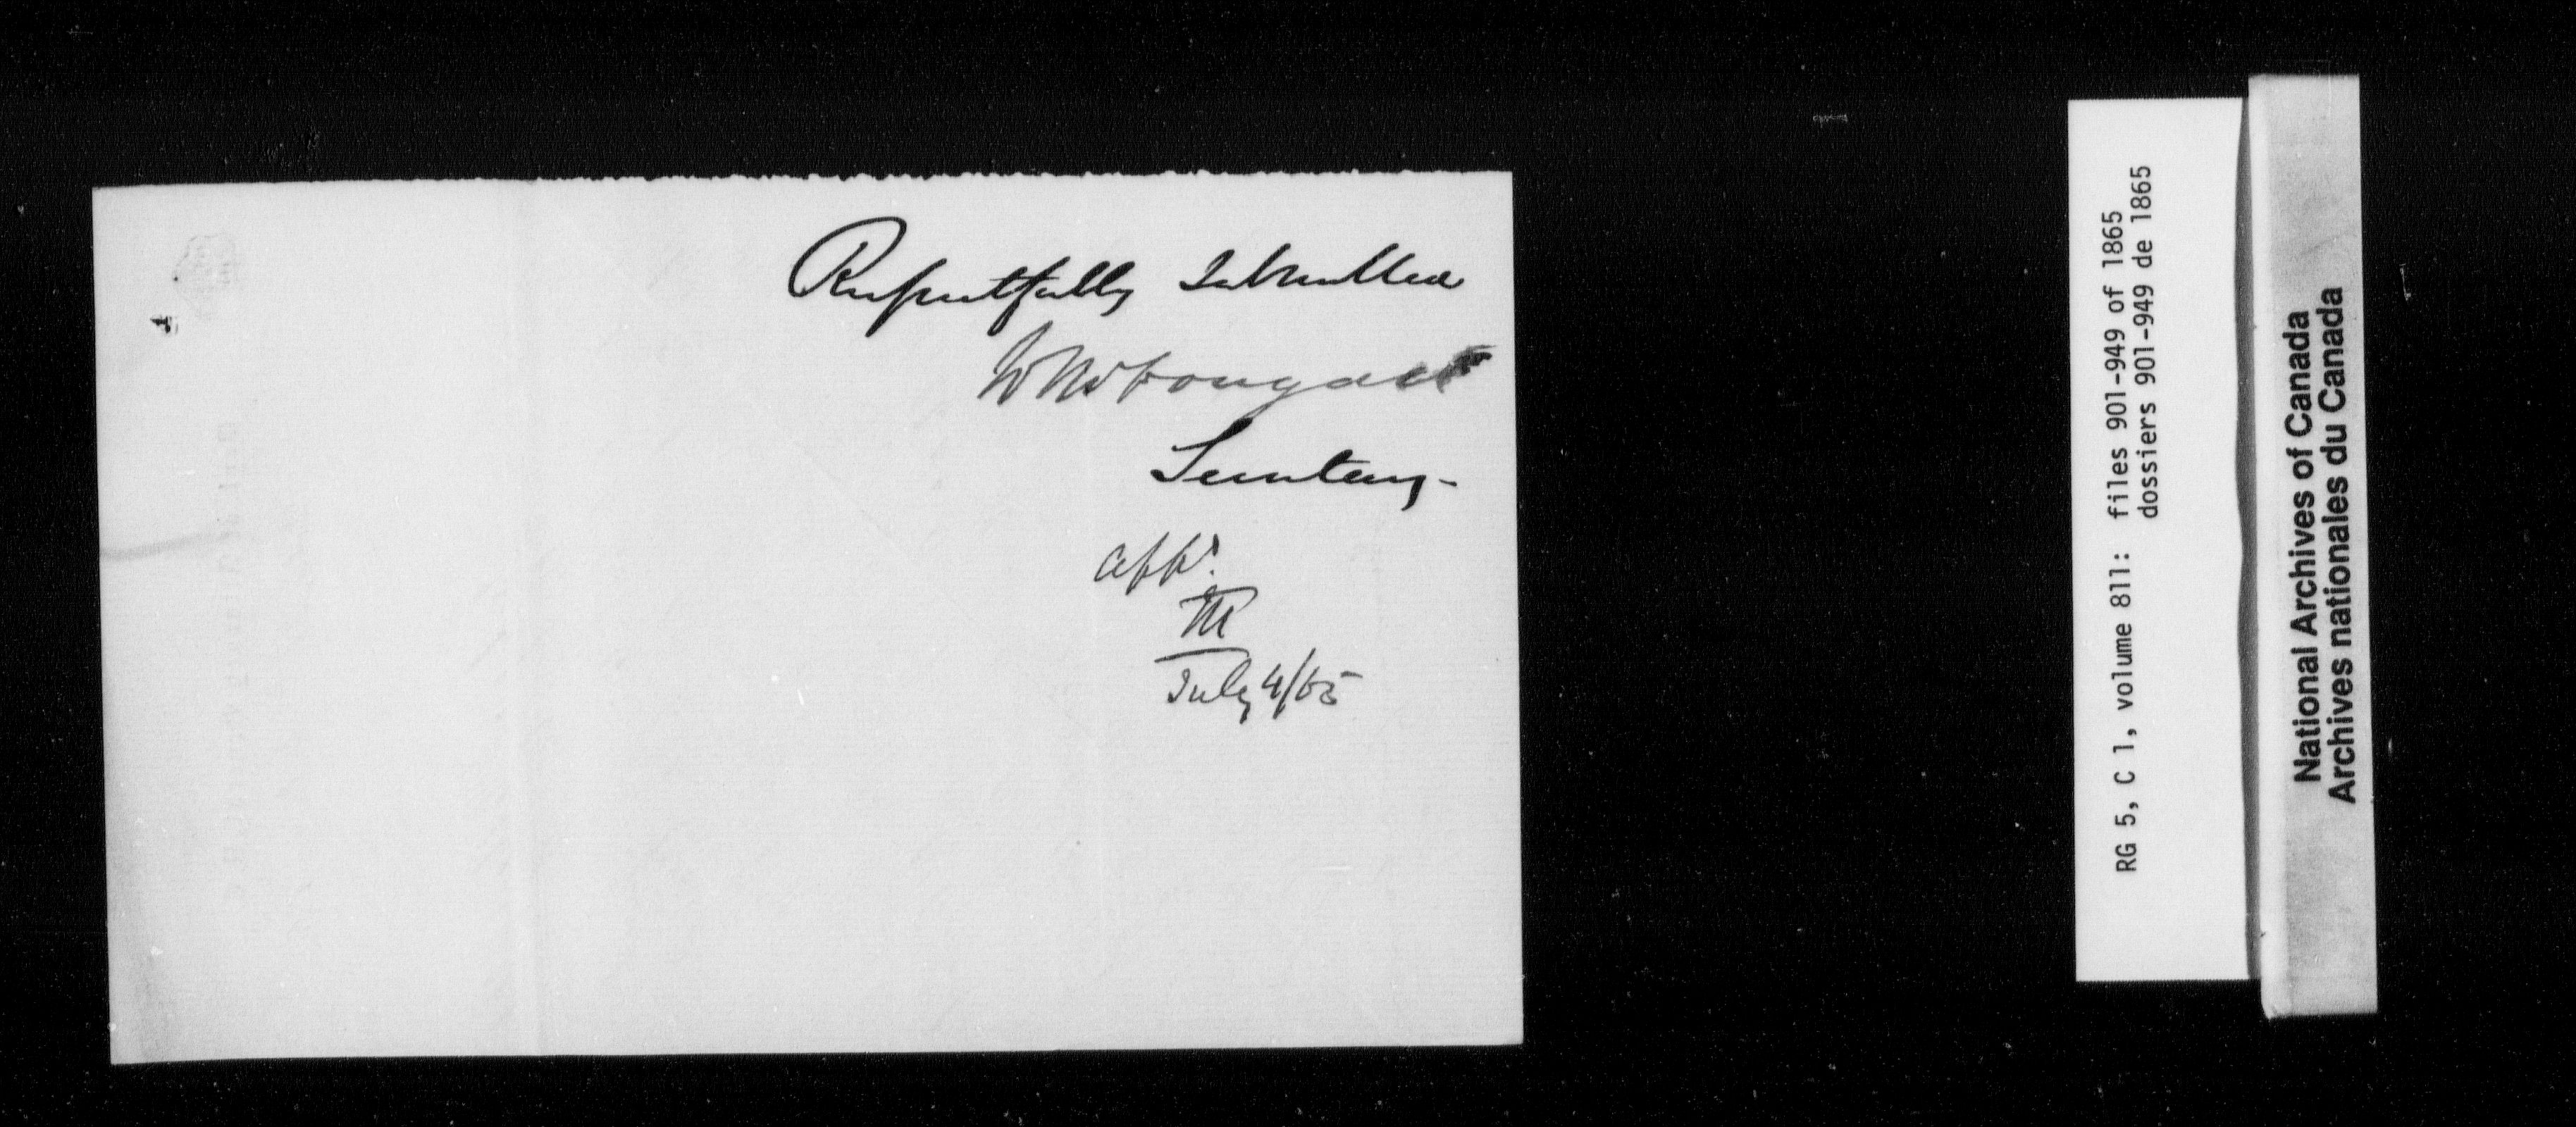 Respectfully Submitted
W McDougall
Secretary-
Appd.
M
July 4/65
RG 5, C 1, volume 811: files 901-949 of 1865
dossiers 901-949 de 1865
National Archives of Canada
Archives nationales du Canada